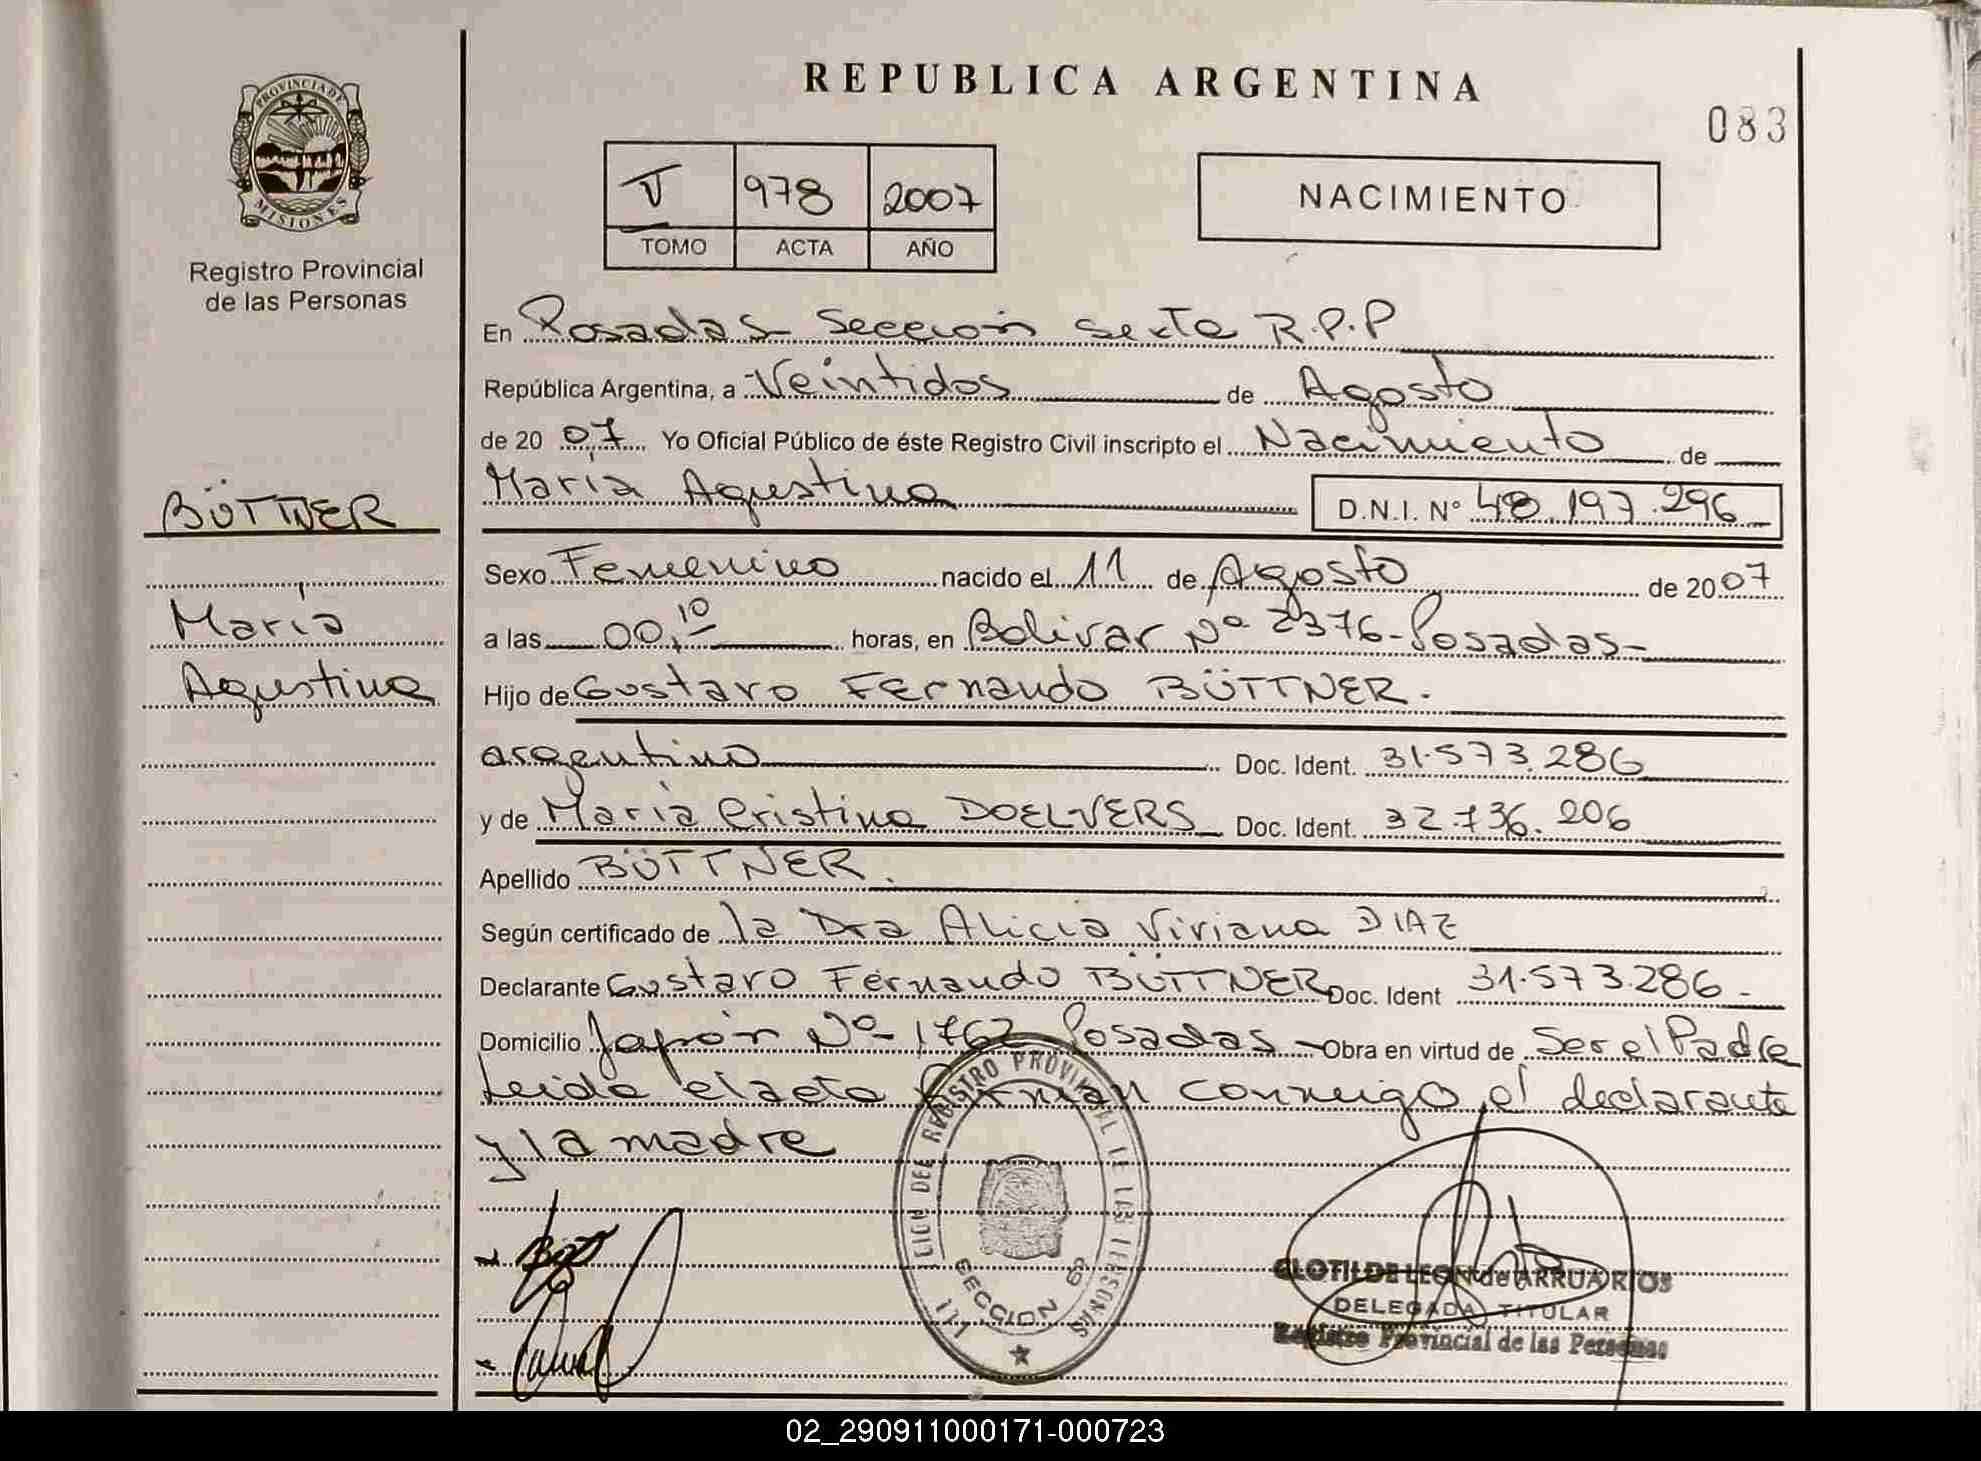 REPUBLICA ARGENTINA
083
PROVINCIA DE
MISIONES
Registro Provincial
de las Personas
V 978 2007
TOMO ACTA AÑO
NACIMIENTO
En Posadas Sección sexta R.P.P
República Argentina, a Veintidos de Agosto
de 20 07 Yo Oficial Público de éste Registro Civil inscripto el Nacimiento de
María Agustina D.N.I. N° 48.197.296
BÜTTNER
María
Agustina
Sexo Femenino nacido el 11 de Agosto de 2007
a las 00,10 horas, en Bolivar Nº 2376-Posadas-
Hijo de Gustavo Fernando BÜTTNER.
argentino Doc. Ident. 31.573.286
y de María Cristina DOELVERS Doc. Ident. 32.736.206
Apellido BÜTTNER.
Según certificado de la Dra Alicia Viviana DIAZ
Declarante Gustavo Fernando BÜTTNER Doc. Ident 31.573.286-
Domicilio Japón Nº 1762 Posadas- Obra en virtud de Ser el Padre
Leida el acta firman conmigo el declarante
y la madre
REGISTRO PROVINCIAL DE LAS PERSONAS
SECCION 6ª
CLOTILDE LEON de ARRUA RIOS
DELEGADA TITULAR
Registro Provincial de las Personas
02_290911000171-000723